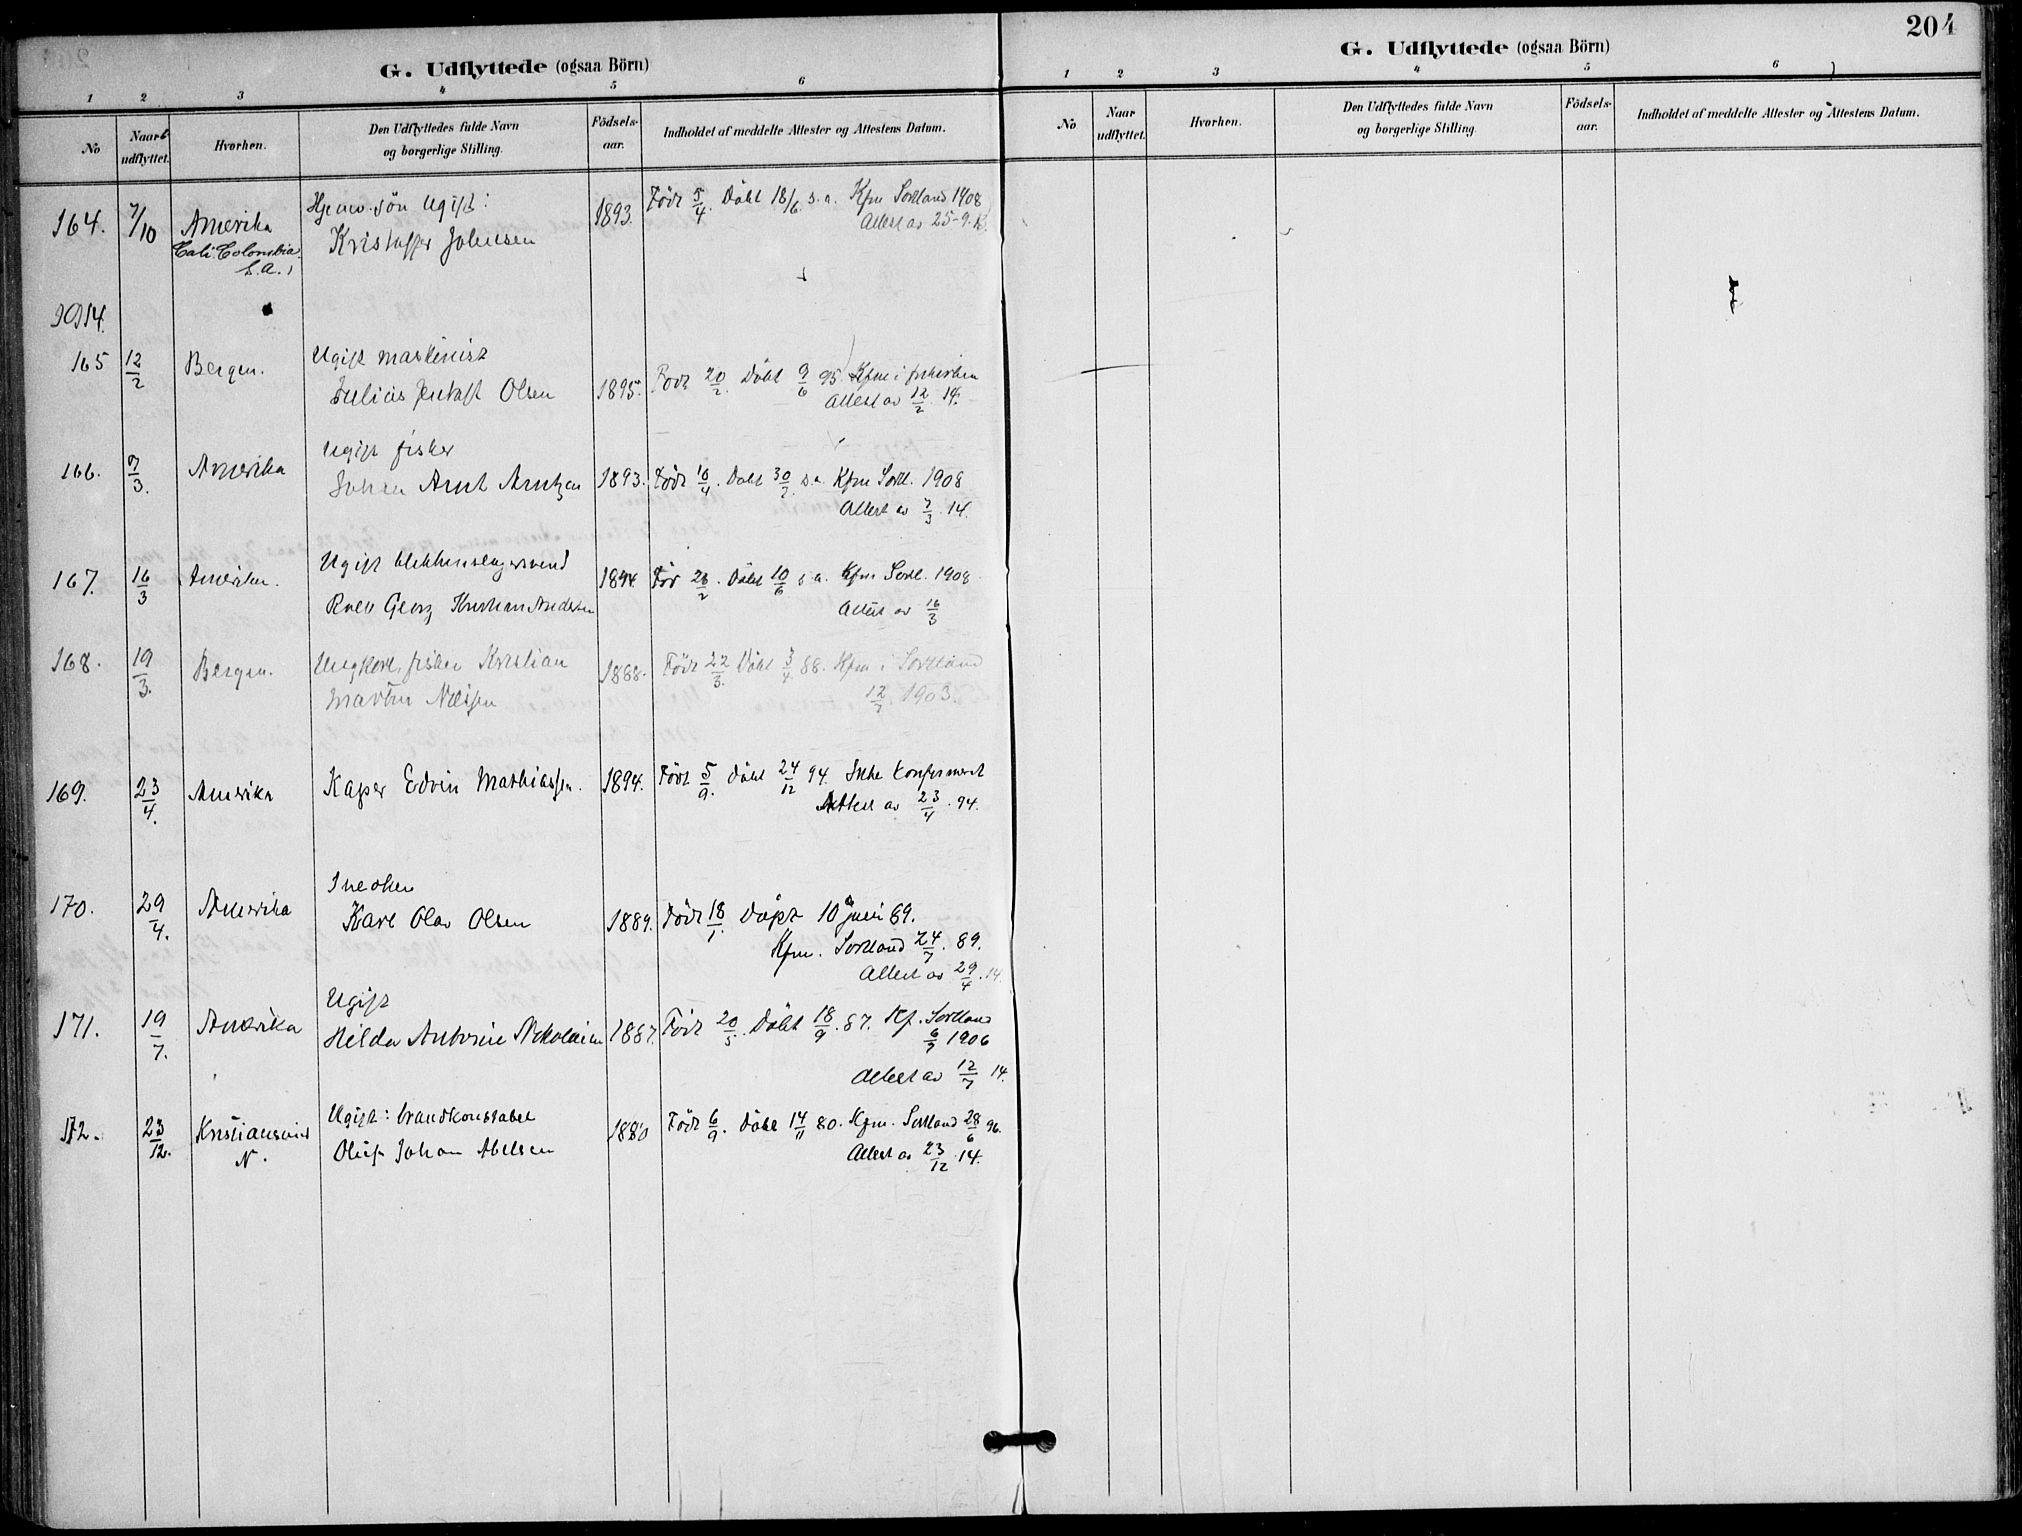 204
G. Udflyttede (ogsaa Börn)
1 2 3 4 5 6
No
Naar udflyttet.
Hvorhen.
Den Udflyttedes fulde Navn og borgerlige Stilling.
Födsels-aar.
Indholdet af meddelte Attester og Attestens Datum.
164. 7/10 Amerika
Cali. Colombia.
S. A.
ugift:
Kristoffer Johnsen
1893.
Född 5/4. Döbt 18/6. s. a. Kfm Sortland 1908
Attest av 25-9-13.
1914.
165 12/2 Bergen.
Ugift maskinist
Julius Olsen
1895.
Född 20/2. Döbt 9/6 95. Kfm i
Attest av 12/2. 14.
166. 7/3. Amerika
Ugift fisker
Johan Arnt Arntzen
1893.
Född 10/4. Döbt 30/7. s. a. Kfm Sortl. 1908
Attest av 7/3. 14.
167. 16/3 Amerika.
Ugift blikkenslagersvend
Georg Kristian Andersen
1894.
Född 28/2. Döbt 10/6 s. a. Kfm Sortl. 1908.
Attest av 16/3
168. 19/3. Bergen.
Ungkarl, fisker Kristian
Martin Nilsen
1888.
Född 22/3. Döbt 3/4. 88. Kfm i Sortland
12/7. 1903.
169. 23/4. Amerika
Kasper Edvin Mathiassen.
1894.
Född 5/9. döbt 24/12 94. Ikke konfirmert
Attest av 23/4. 94.
170. 29/4. Amerika
Snedker
Karl Olav Olsen
1889.
Född 18/1. Döpt 10 juni 89.
Kfm. Sortland 24/7. 89.
Attest av 29/4. 14.
171. 19/7. Amerika
Ugift
Hilda Antonie Nikolaisen
1887.
Född 20/5. Döbt 18/9. 87. Kf. Sortland
6/7 1906
Attest av 12/7 14.
172. 23/12. Kristiansund
N.
Ugift: brandkonstabel
Oluf Johan Abelsen
1880
Född 6/9. Döbt 14/11 80. Kfm. Sortland 28/6 96.
Attest av 23/12. 14.
G. Udflyttede (ogsaa Börn)
1 2 3 4 5 6
No
Naar udflyttet.
Hvorhen.
Den Udflyttedes fulde Navn og borgerlige Stilling.
Födsels-aar.
Indholdet af meddelte Attester og Attestens Datum.